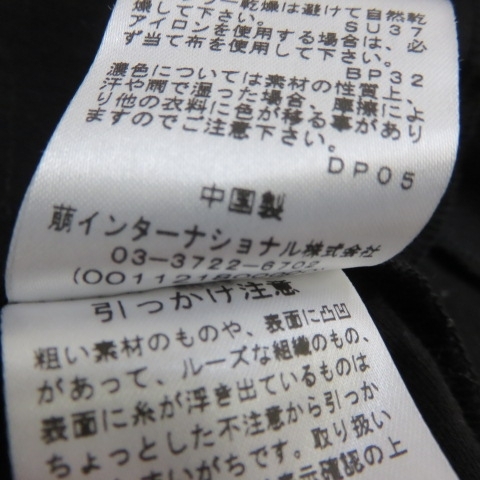 ー乾燥は避けて自然乾
燥して下さい。
SU37
アイロンを使用する場合は、必
ず当て布を使用して下さい。
BP32
濃色については素材の性質上、
汗や雨で湿った場合、摩擦によ
り他の衣料に色が移る事があり
ますのでご注意下さい。
DP05
中国製
萠インターナショナル株式会社
03-3722-6702
引っかけ注意
粗い素材のものや、表面に凸凹
があって、ルーズな組織のもの、
表面に糸が浮き出ているものは
ちょっとした不注意から引っか
すいがちです。取り扱い
表示確認の上